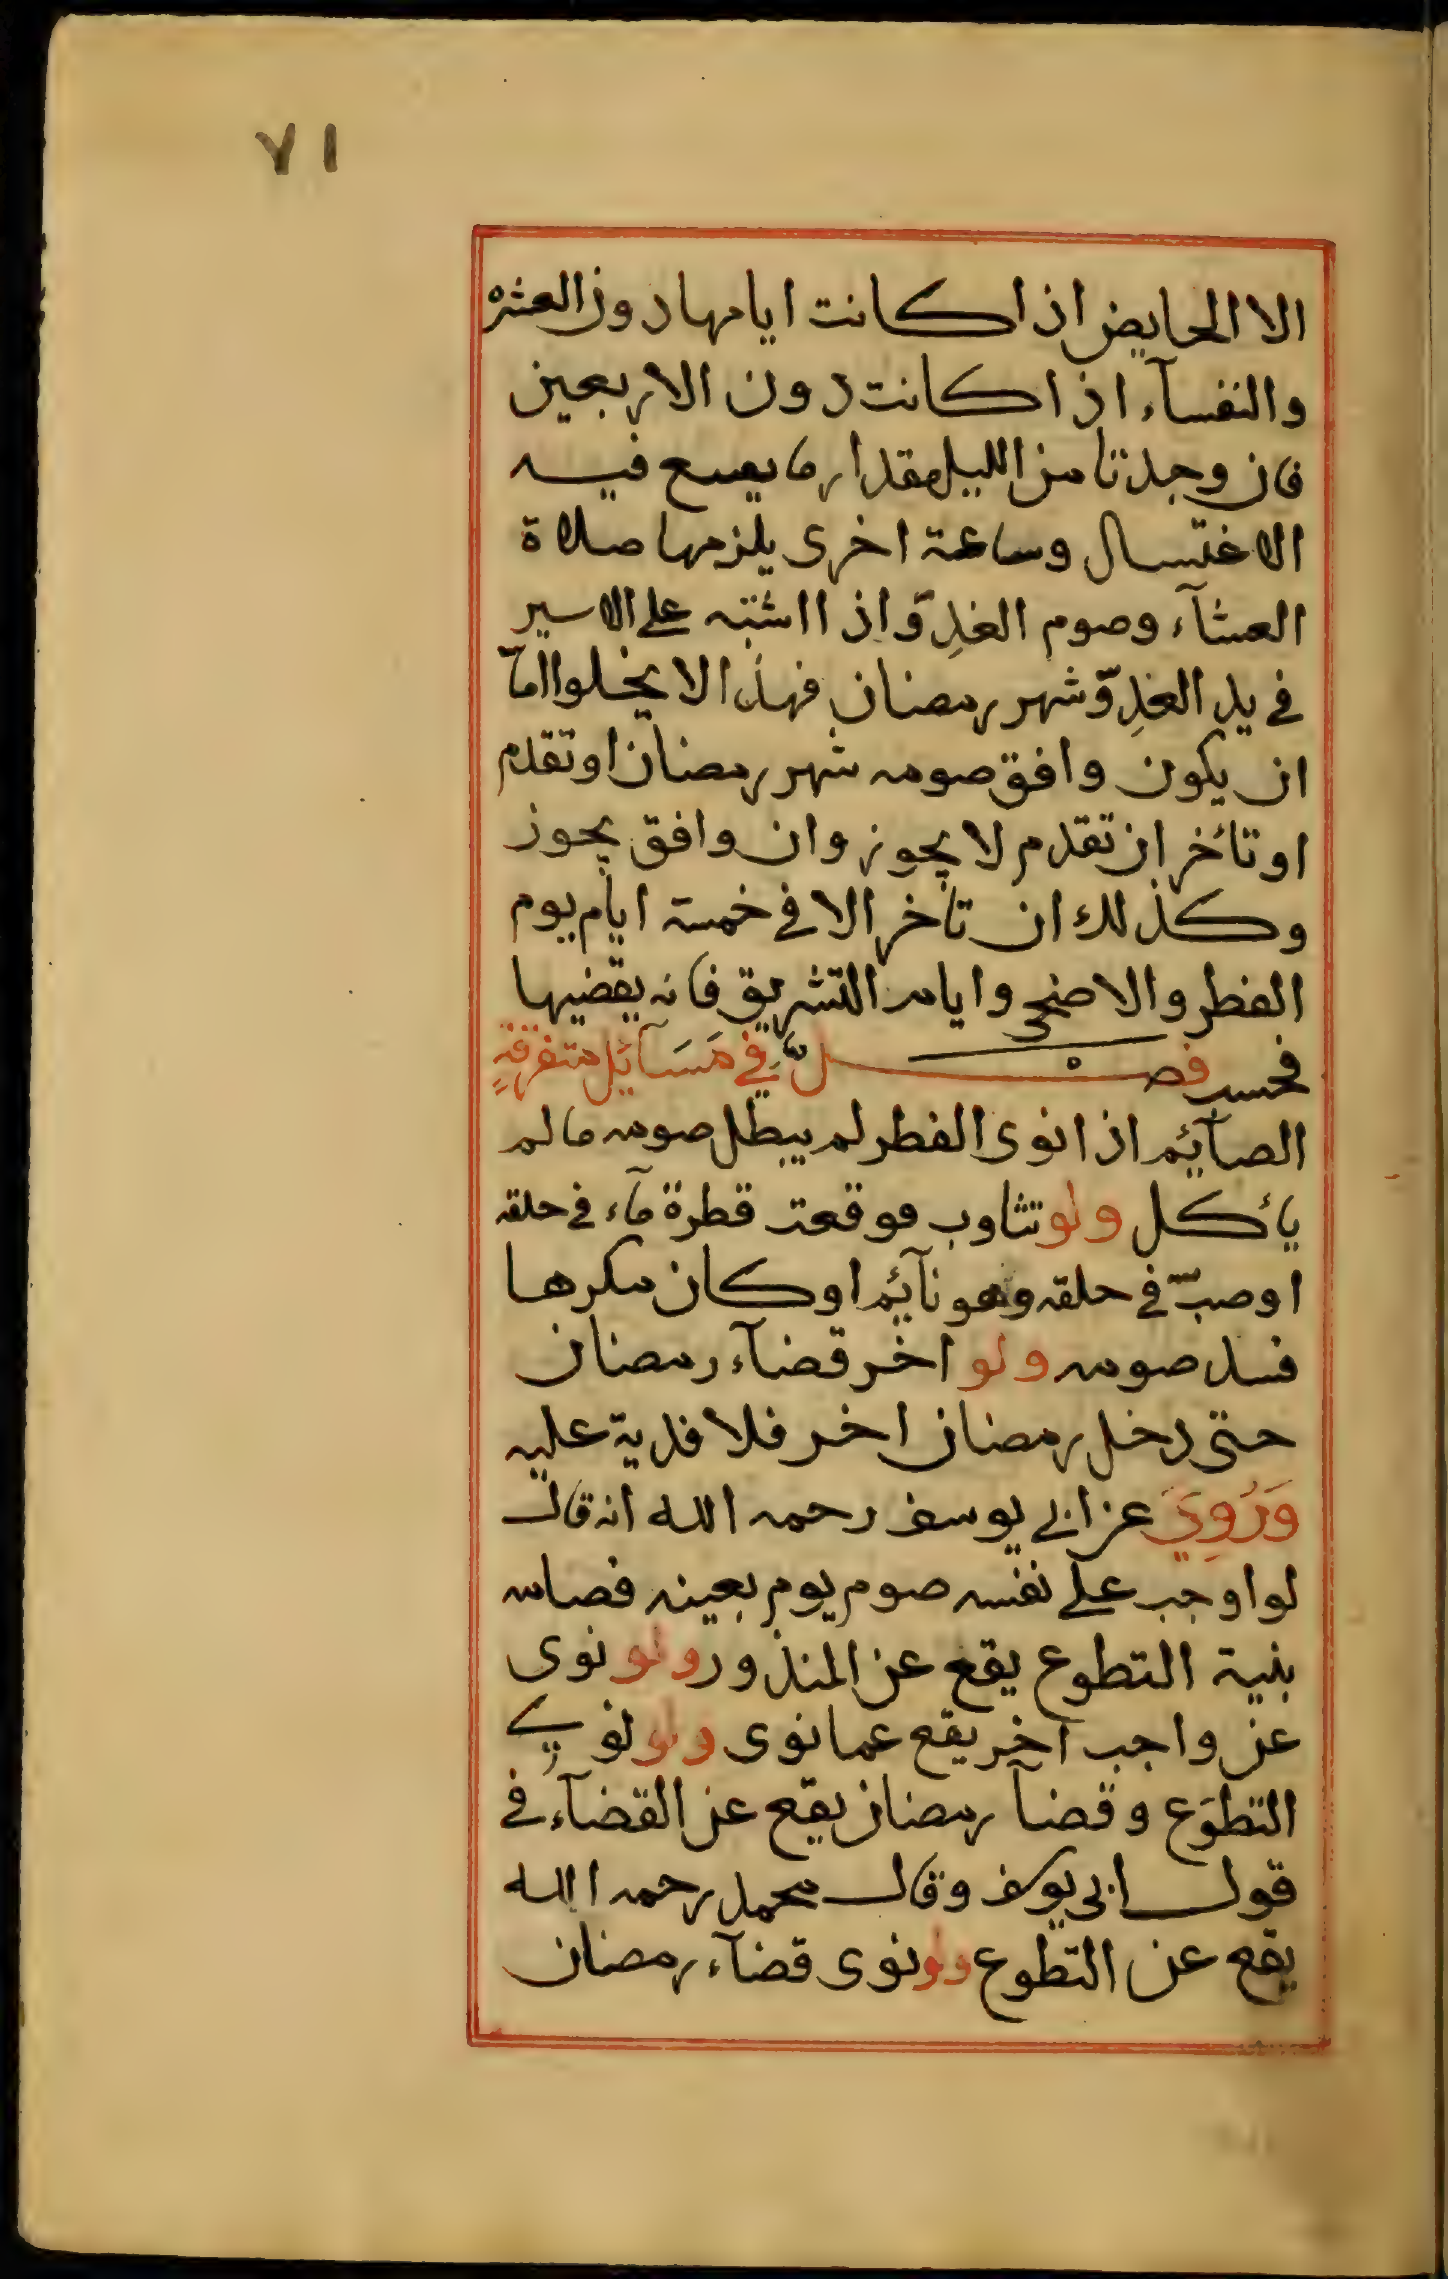 ٧١
الا الحايض اذا كانت ايامها دون العشرة
والنفسآء اذا كانت دون الاربعين
فان وجدتا من الليل مقدار ما يسع فيه
الاغتسال وساعة اخرى يلزمها صلاة
العشآء وصوم الغدِ وّاذا اشتبه على الاسير
في يد العَدِوّ شهر رمضان فهذا لا يخلوا امّا
ان يكون وافق صومه شهر رمضان او تقدم
او تأخر ان تقدم لا يجوز وان وافق يجوز
وكذلك ان تأخر الا في خمسة ايام يوم
الفطر والاضحى وايام التشريق فانه يقضيها
فحسب فصـــلٌ في مَسَآئِل متفرقةٍ
الصآئم اذا نوى الفطر لم يبطل صومه ما لم
يأكل ولو تثاوب فوقعت قطرة مآء في حلقه
او صبّ في حلقه وهو نآئم او كان مكرها
فسد صومه ولو اخر قضآء رمضان
حتى دخل رمضان اخر فلا فدية عليه
وَرُوِيَ عن ابي يوسف رحمه الله انه قال
لو اوجب على نفسه صوم يوم بعينه فصامه
بنية التطوع يقع عن المنذور ولو نوى
عن واجب اخر يقع عما نوى ولو نوى
التطوع وقضآ رمضان يقع عن القضآء في
قول ابي يوسف وقال محمد رحمه الله
يقع عن التطوع ولو نوى قضآء رمضان